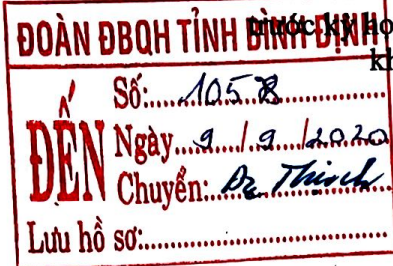 ĐOÀN ĐBQH TỈNH BÌNH ĐỊNH
trước kỳ họ
kh
ĐẾN
Số:.....1058.....
Ngày...9.../.9.../2020
Chuyển:
Lưu hồ sơ:.....